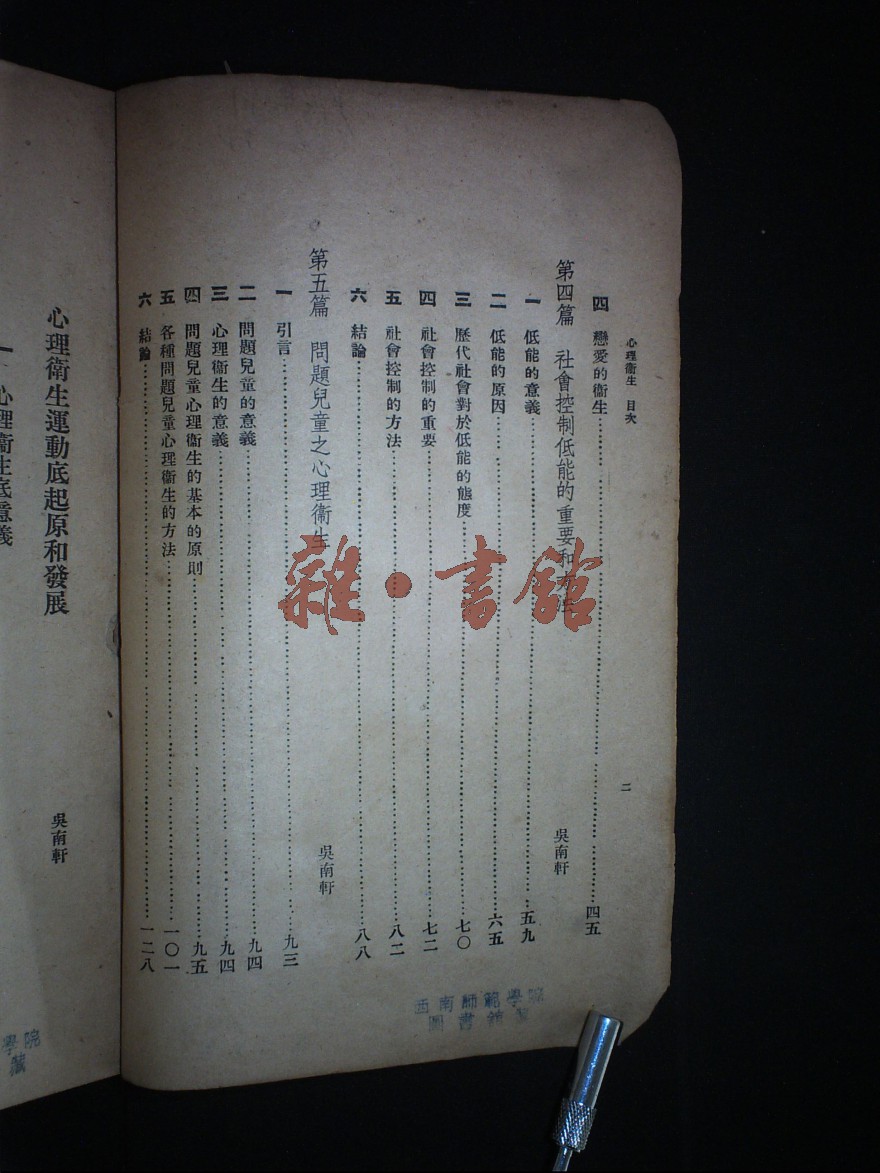 心理衛生 目次
二
四 戀愛的衞生 四五
第四篇 社會控制低能的重要和方法 吳南軒
一 低能的意義 五九
二 低能的原因 六五
三 歷代社會對於低能的態度 七〇
四 社會控制的重要 七二
五 社會控制的方法 八二
六 結論 八八
第五篇 問題兒童之心理衞生 吳南軒
一 引言 九三
二 問題兒童的意義 九四
三 心理衞生的意義 九四
四 問題兒童心理衞生的基本的原則 九五
五 各種問題兒童心理衞生的方法 一〇一
六 結論 一二八
西南師範學院
圖書館藏
雜·書館
心理衛生運動底起原和發展
吳南軒
一 心理衞生底意義
學院
藏